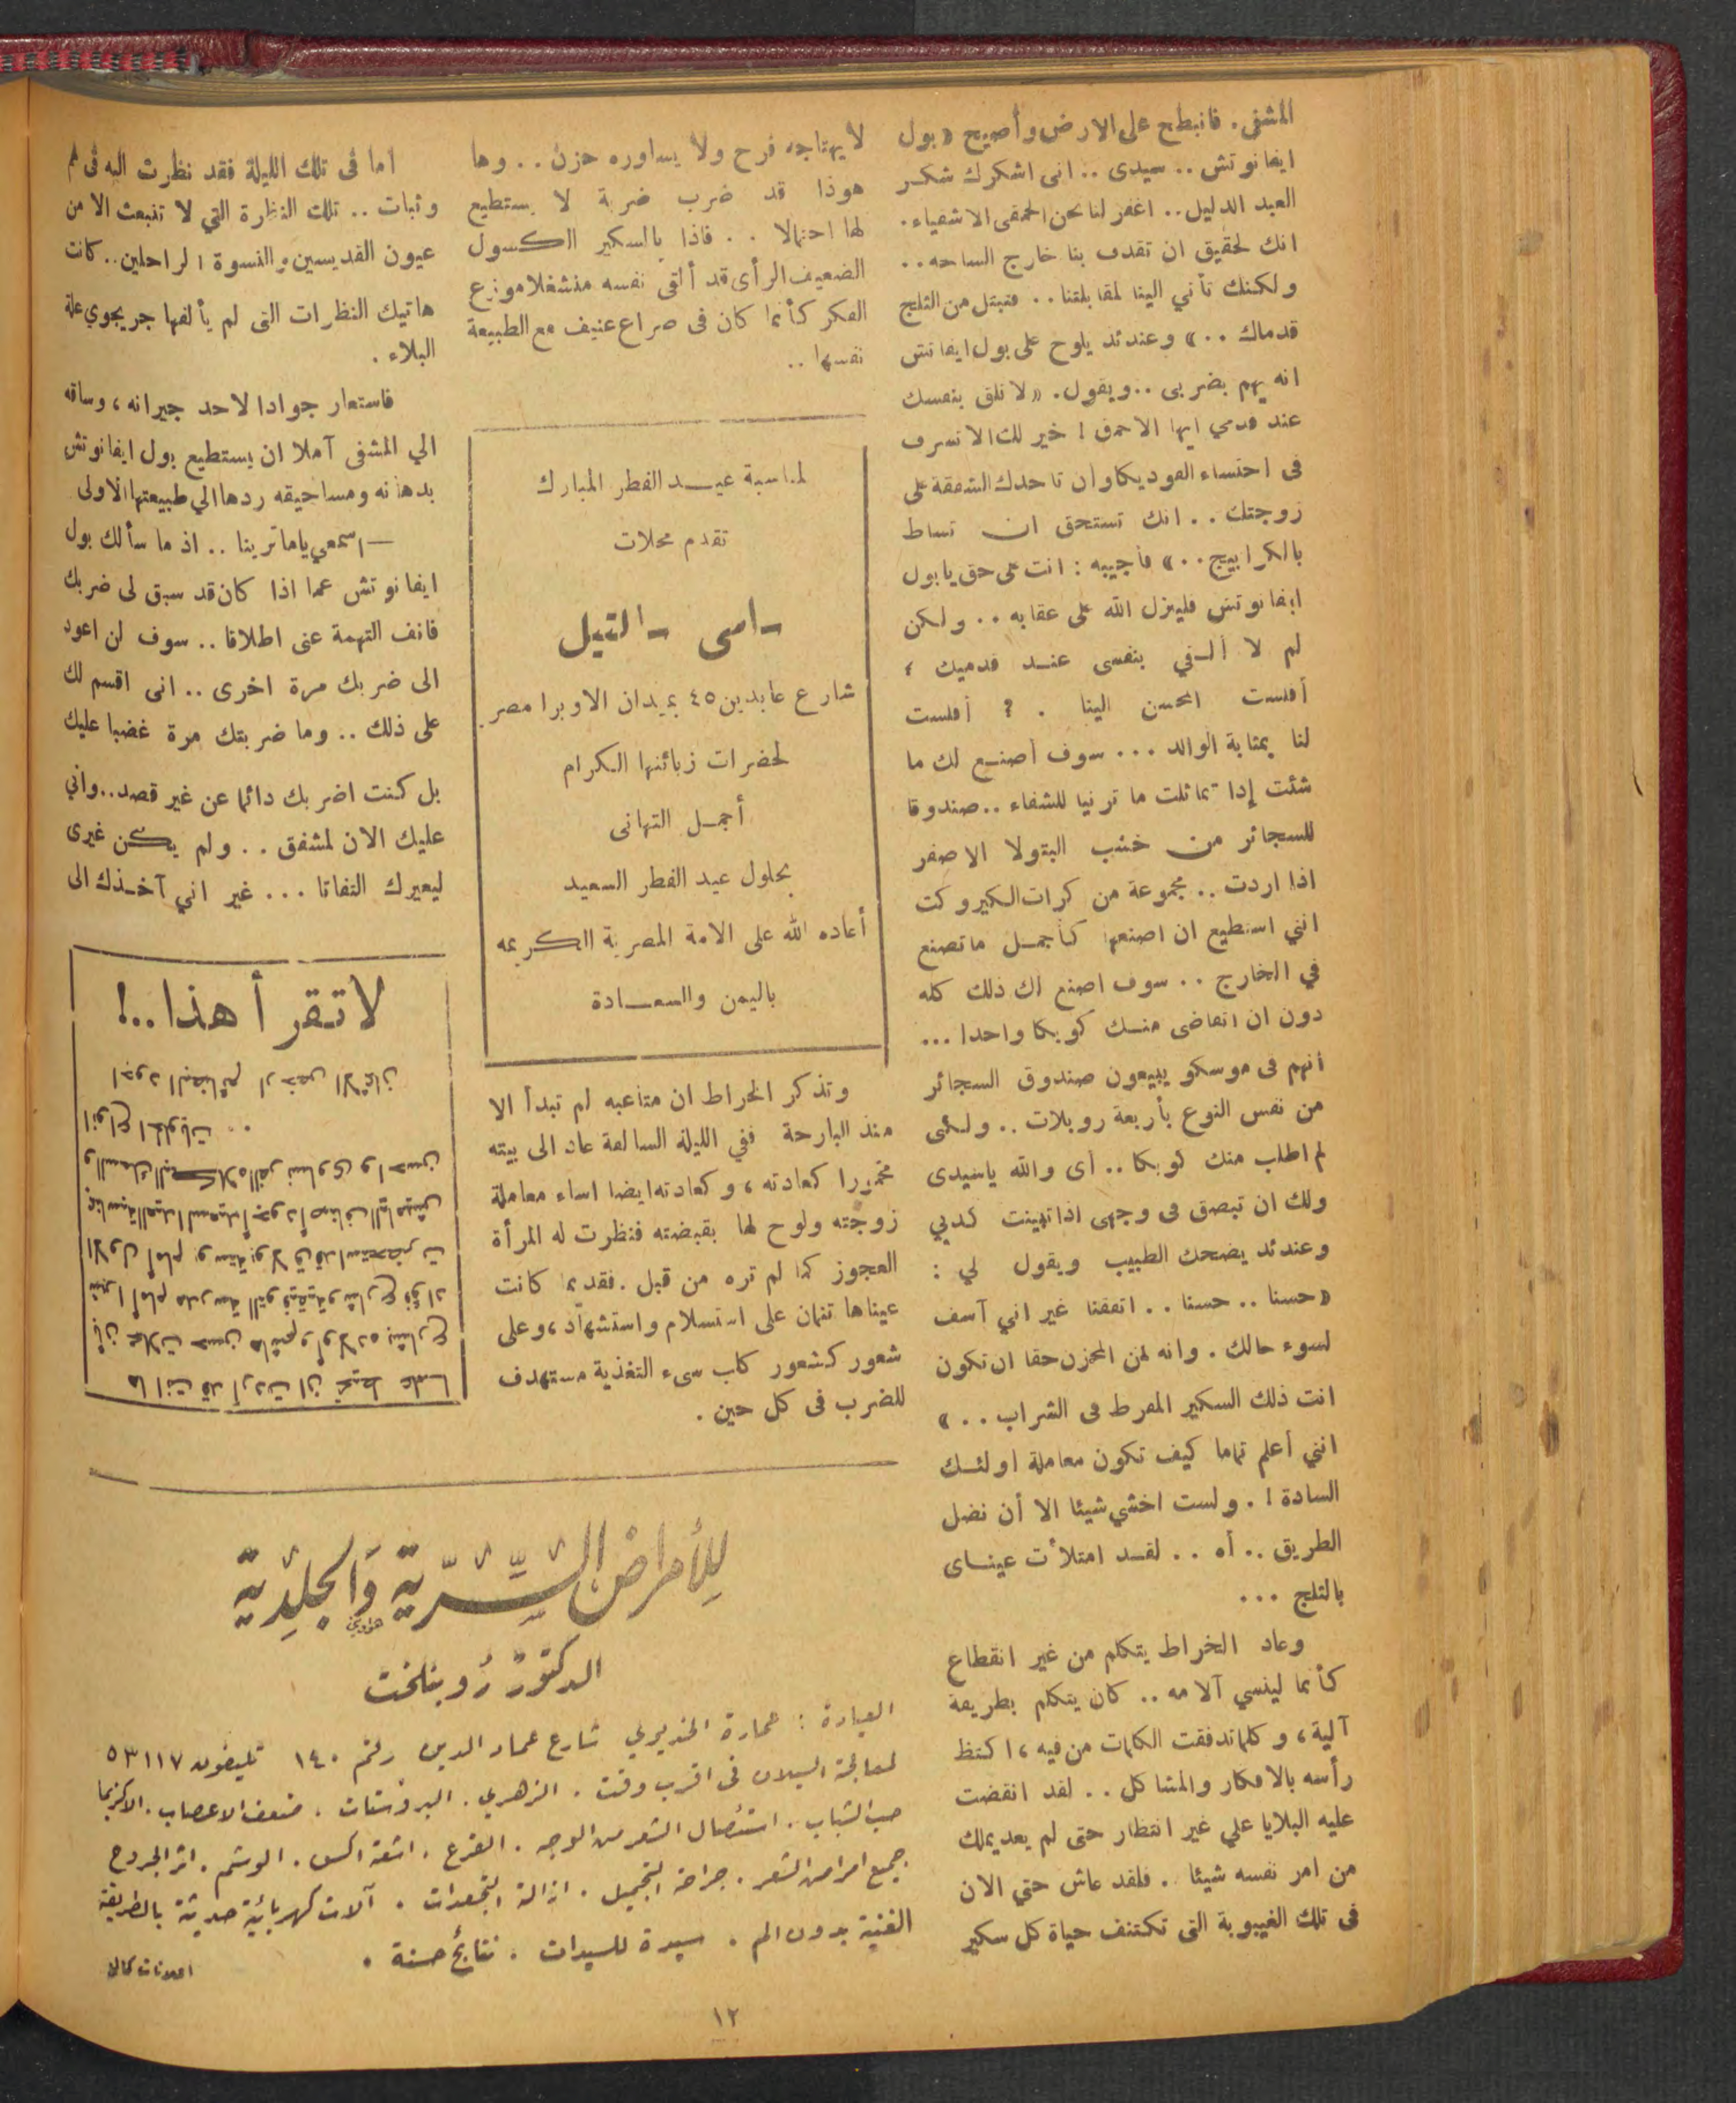 المشفى. فانبطح على الارض وأصيح «بول
ايفانوتش .. سيدى .. انى اشكرك شكر
العبد الذليل.. اغفر لنا نحن الحمقى الاشقياء.
انك لحقيق ان تقذف بنا خارج الساحه ..
ولكنك تأتي الينا لمقابلتنا .. فتبتل من الثلج
قدماك ..» وعندئذ يلوح على بول ايفانتش
انه يهم بضربى .. ويقول. «لا تلق بنفسك
عند قدمي ايها الاحمق ! خير لك الا تسرف
فى احتساء الفوديكا وان تاخذك الشفقة على
زوجتك .. انك تستحق ان تساط
بالكرابيج ..» فأجيبه : انت على حق يا بول
ايفانوتش فلينزل الله على عقابه .. ولكن
لم لا ألقي بنفسى عند قدميك ؛
أفلست المحسن الينا . ? أفلست
لنا بمثابة الوالد ... سوف أصنع لك ما
شئت إذا تماثلت ماترنيا للشفاء .. صندوقا
للسجائر من خشب البتولا الاصفر
اذا اردت .. مجموعة من كرات الكيروكت
انني استطيع ان اصنعها كأجمل ما تصنع
في الخارج .. سوف اصنع لك ذلك كله
دون ان اتقاضى منك كوبكا واحدا ...
انهم فى موسكو يبيعون صندوق السجائر
من نفس النوع بأربعة روبلات .. ولكنى
لم اطلب منك كوبكا .. أى والله ياسيدى
ولك ان تبصق فى وجهى اذا تبينت كذبي
وعندئذ يضحك الطبيب ويقول لي :
«حسنا .. حسنا .. اتفقنا غير اني آسف
لسوء حالك . وانه لمن المحزن حقا ان تكون
انت ذلك السكير المفرط فى الشراب ..»
انني أعلم تماما كيف تكون معاملة اولئك
السادة ! . ولست اخشي شيئا الا أن نضل
الطريق .. أه .. لقد امتلأت عيناى
بالثلج ...
وعاد الخراط يتكلم من غير انقطاع
كأنما لينسي آلامه .. كان يتكلم بطريقة
آلية ، وكلما تدفقت الكلمات من فيه ، اكتظ
رأسه بالافكار والمشاكل .. لقد انقضت
عليه البلايا علي غير انتظار حتى لم يعد يملك
من امر نفسه شيئا .. فلقد عاش حتي الان
فى تلك الغيبوبة التى تكتنف حياة كل سكير
لا يهتاجه فرح ولا يساوره حزن .. وها
هوذا قد ضرب ضربة لا يستطيع
لها احتمالا .. فاذا بالسكير الكسول
الضعيف الرأى قد ألقى نفسه منشغلا موزع
الفكر كأنما كان فى صراع عنيف مع الطبيعة
نفسها ..
لمناسبة عيد الفطر المبارك
تقدم محلات
ـ اسى ـ التيل
شارع عابدين ٤٥ بميدان الاوبرا مصر.
لحضرات زبائنها الكرام
أجمل التهانى
بحلول عيد الفطر السعيد
أعاده الله على الامة المصرية الكريمه
باليمن والسعادة
وتذكر الخراط ان متاعبه لم تبدأ الا
منذ البارحة ففي الليلة السالفة عاد الى بيته
مخمورا كعادته ، وكعادته ايضا اساء معاملة
زوجته ولوح لها بقبضته فنظرت له المرأة
العجوز كما لم تره من قبل . فقديما كانت
عيناها تنمان على استسلام واستشهاد ، وعلى
شعور كشعور كلب سىء التغذية مستهدف
للضرب فى كل حين .
اما فى تلك الليلة فقد نظرت اليه فى هم
وثبات .. تلك النظرة التي لا تنبعث الا من
عيون القديسين والنسوة الراحلين .. كانت
هاتيك النظرات التى لم يألفها جريجوي علة
البلاء .
فاستعار جوادا لاحد جيرانه ، وساقه
الي المشفى آملا ان يستطيع بول ايفانوتش
بدهانه ومساحيقه ردها الي طبيعتها الاولى
— اسمعي ياماترينا .. اذ ما سألك بول
ايفانوتش عما اذا كان قد سبق لى ضربك
فانف التهمة عنى اطلاقا .. سوف لن اعود
الى ضربك مرة اخرى .. انى اقسم لك
على ذلك .. وما ضربتك مرة غضبا عليك
بل كنت اضربك دائما عن غير قصد .. واني
عليك الان لمشفق .. ولم يكن غيرى
ليعيرك التفاتا ... غير اني آخذك الى
لاتقرأ هذا ..!
ها انت قد أردت ان تحيط علما
بأن محلات حسن هاشم وأولاده بشارع
شبرا أمام مدرسة التوفيقية وشارع فؤاد
الاول أمام بوستة بولاق قد استحضرت
بمناسبة العيد السعيد أجود أصناف الياميش
انواع الحلويات ..
اجود البضائع ارخص الاثمان
للأمراض السِّرّية وَالجِلدِيّة
الدكتور رُوبنلخت
العيادة : عمارة الخديوي شارع عماد الدين رقم ١٤٠ تليفون ٥٣١١٧
لمعالجة السيلان فى اقرب وقت . الزهري . البروستات . ضعف الاعصاب . الاكزيما
حب الشباب . استئصال الشعر من الوجه . القرع . اشعة اكس . الوشم . اثر الجروح
جميع امراض الشعر . جراحة التجميل . ازالة التجعدات . آلات كهربائية حديثة بالطريقة
الفنية بدون الم . سيدة للسيدات . نتائج حسنة .
١٢